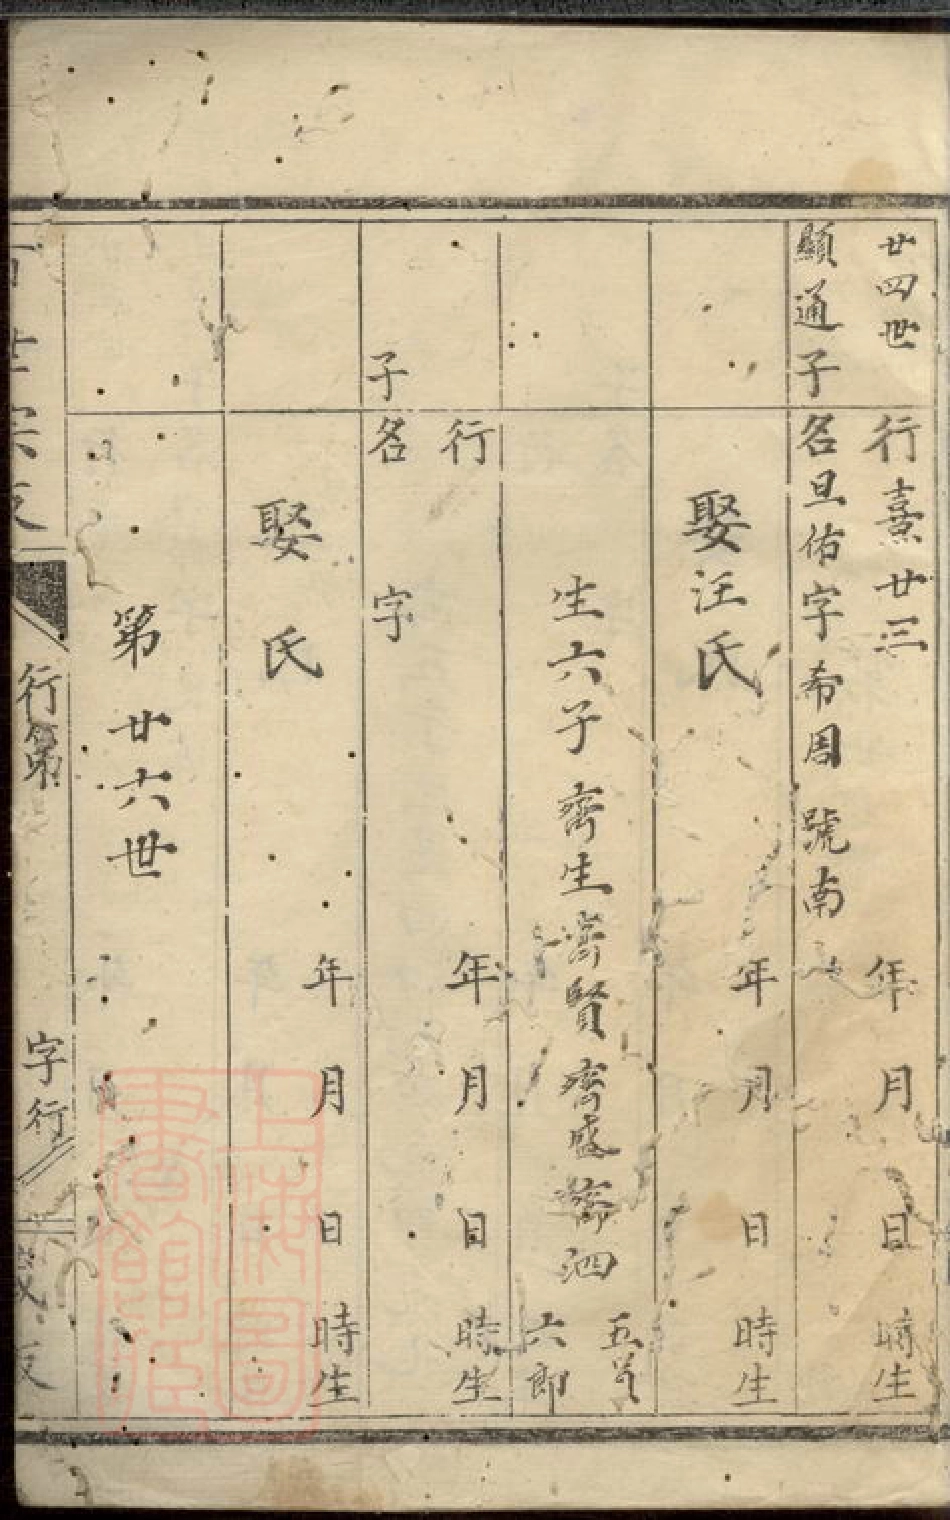 廿四世 行熹廿三 年 月 日 時生
顯通子 名旦佑字希周號南
娶汪氏 年 月 日 時生
生六子 齊生 齊賢 齊盛 齊泗 五 六郎
行 年 月 日 時生
子 名 字
娶 氏 年 月 日 時生
第廿六世
行第 字行